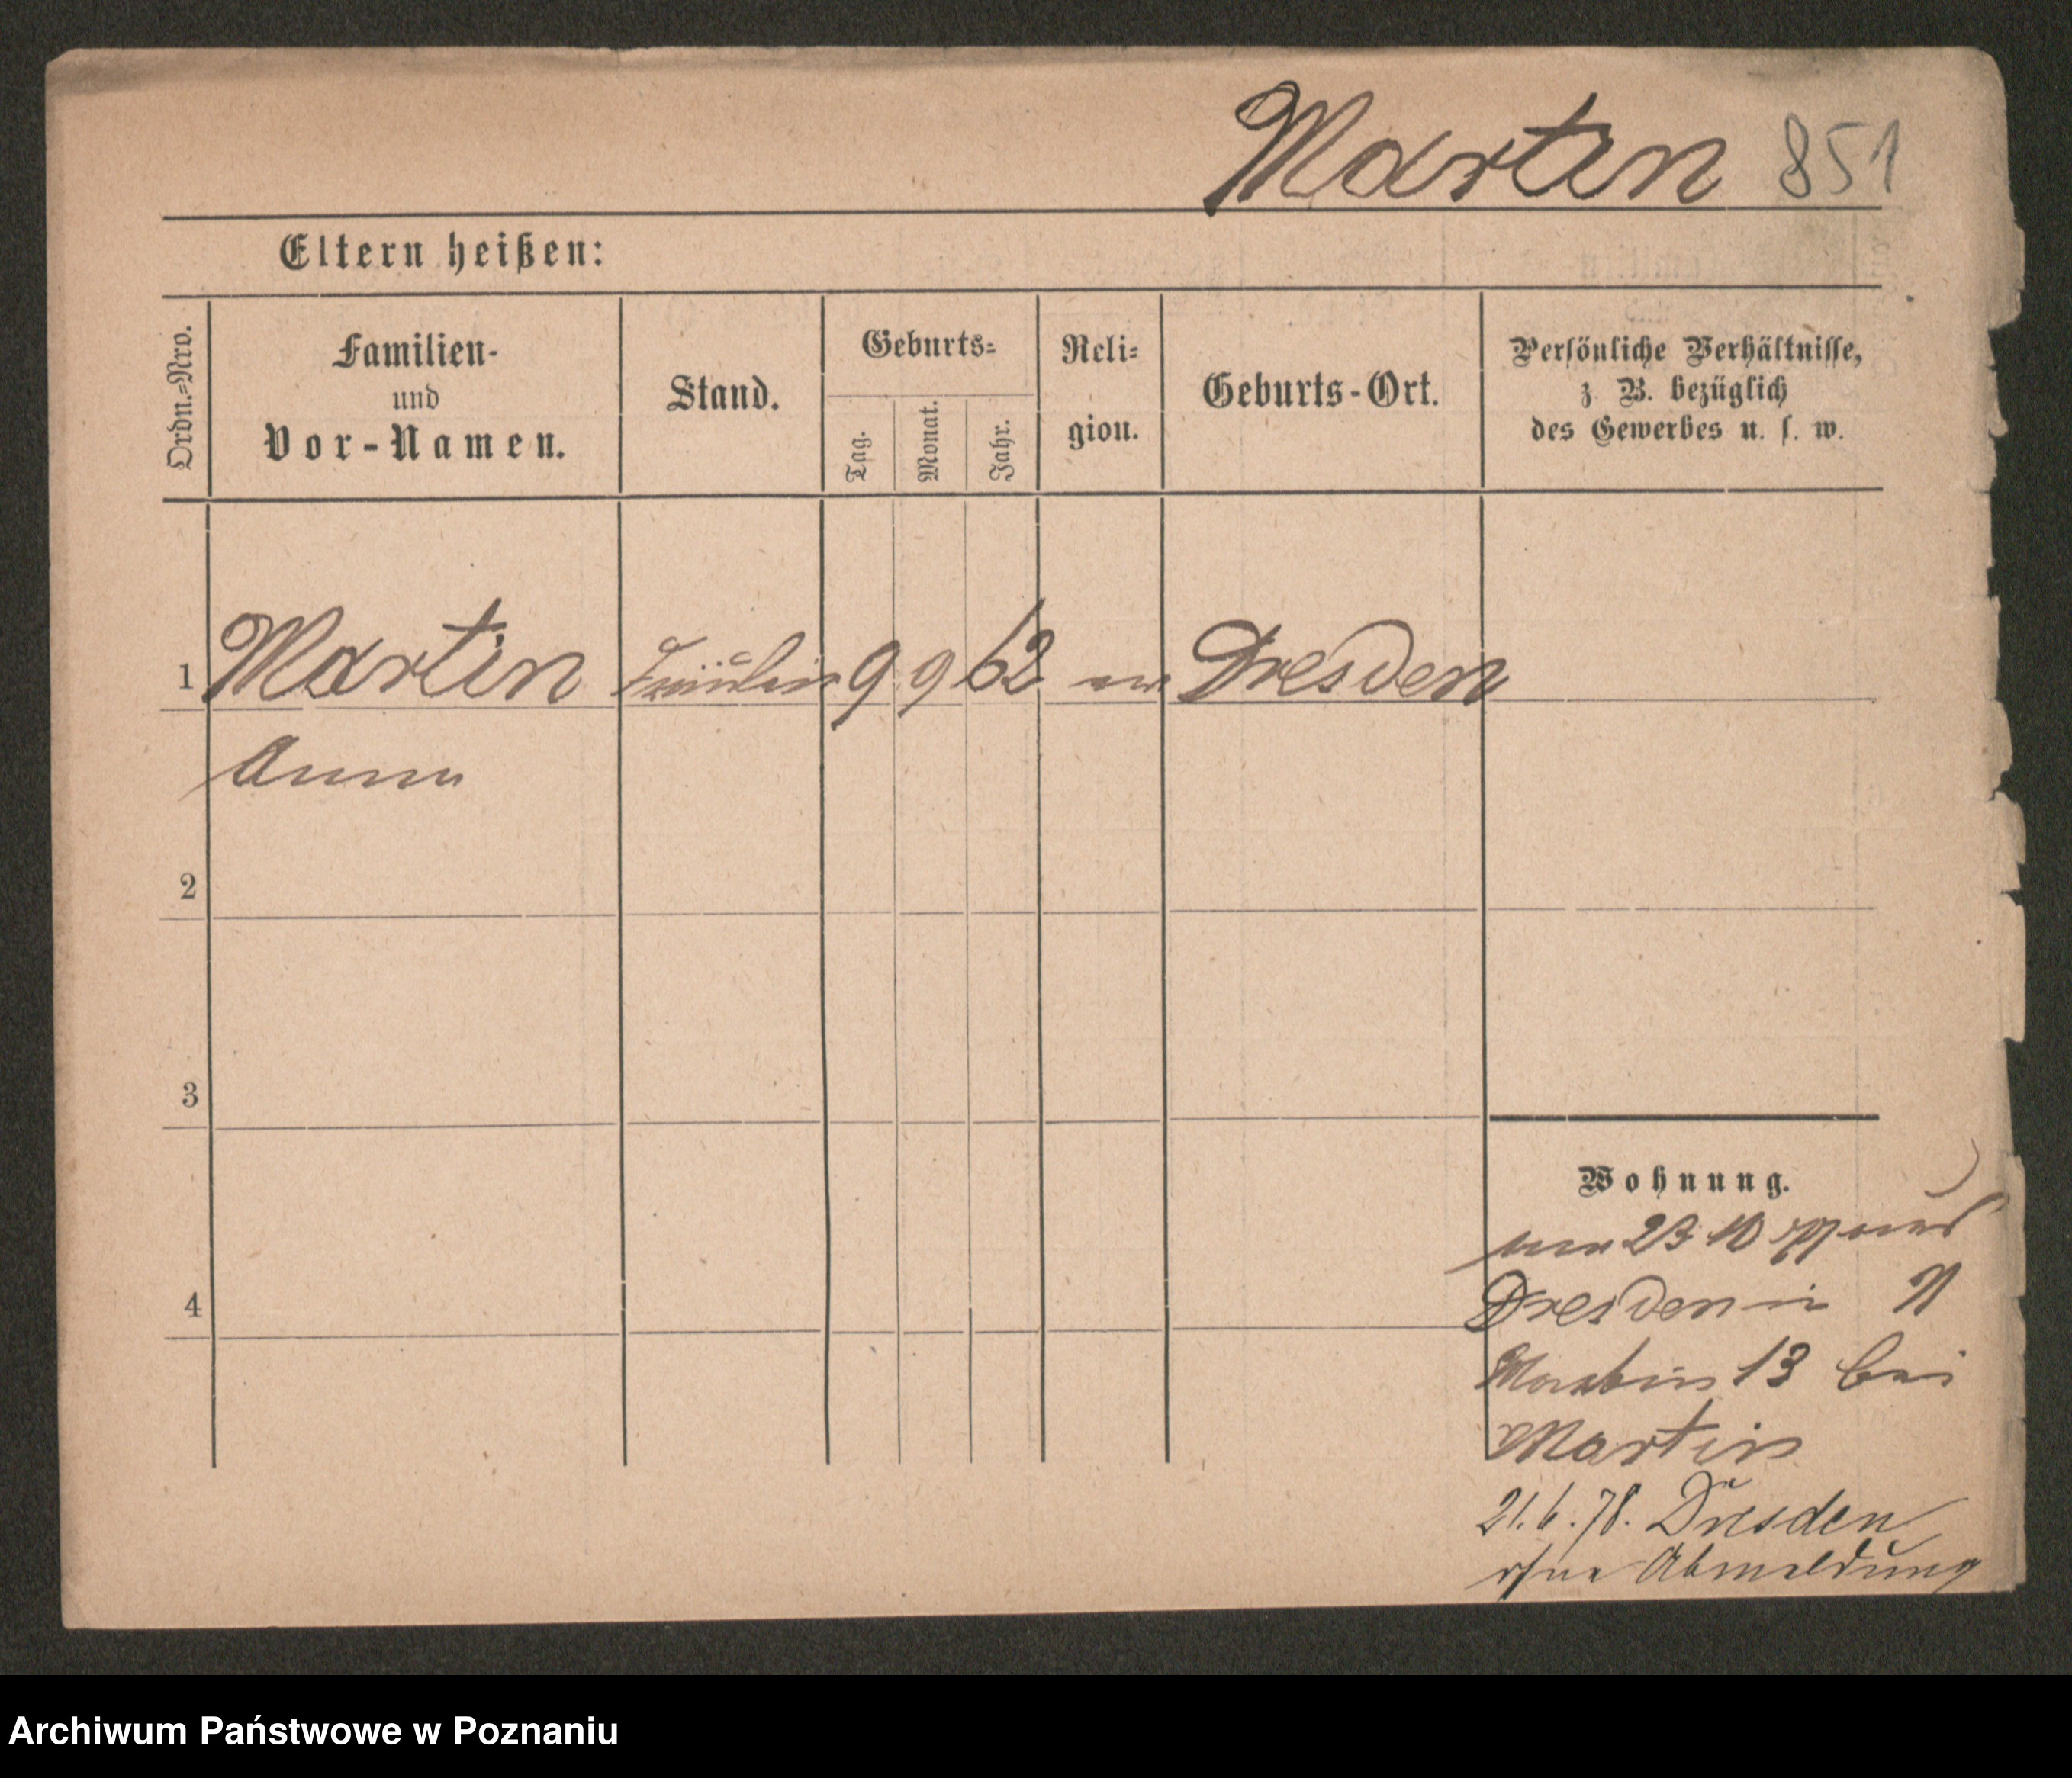 Martin 851
Eltern heißen:
Ordn.=Nro.
Familien-
und
Vor-Namen.
Stand.
Geburts=
Tag.
Monat.
Jahr.
Reli=
gion.
Geburts-Ort.
Persönliche Verhältnisse,
z. B. bezüglich
des Gewerbes u. s. w.
1 Martin Fräulein 9 9 62 ev Dresden
Anna
2
3
4
Wohnung.
23 10 77
Dresden in
13 bei
Martin
21.6.78. Dresden
ohne Abmeldung
Archiwum Państwowe w Poznaniu